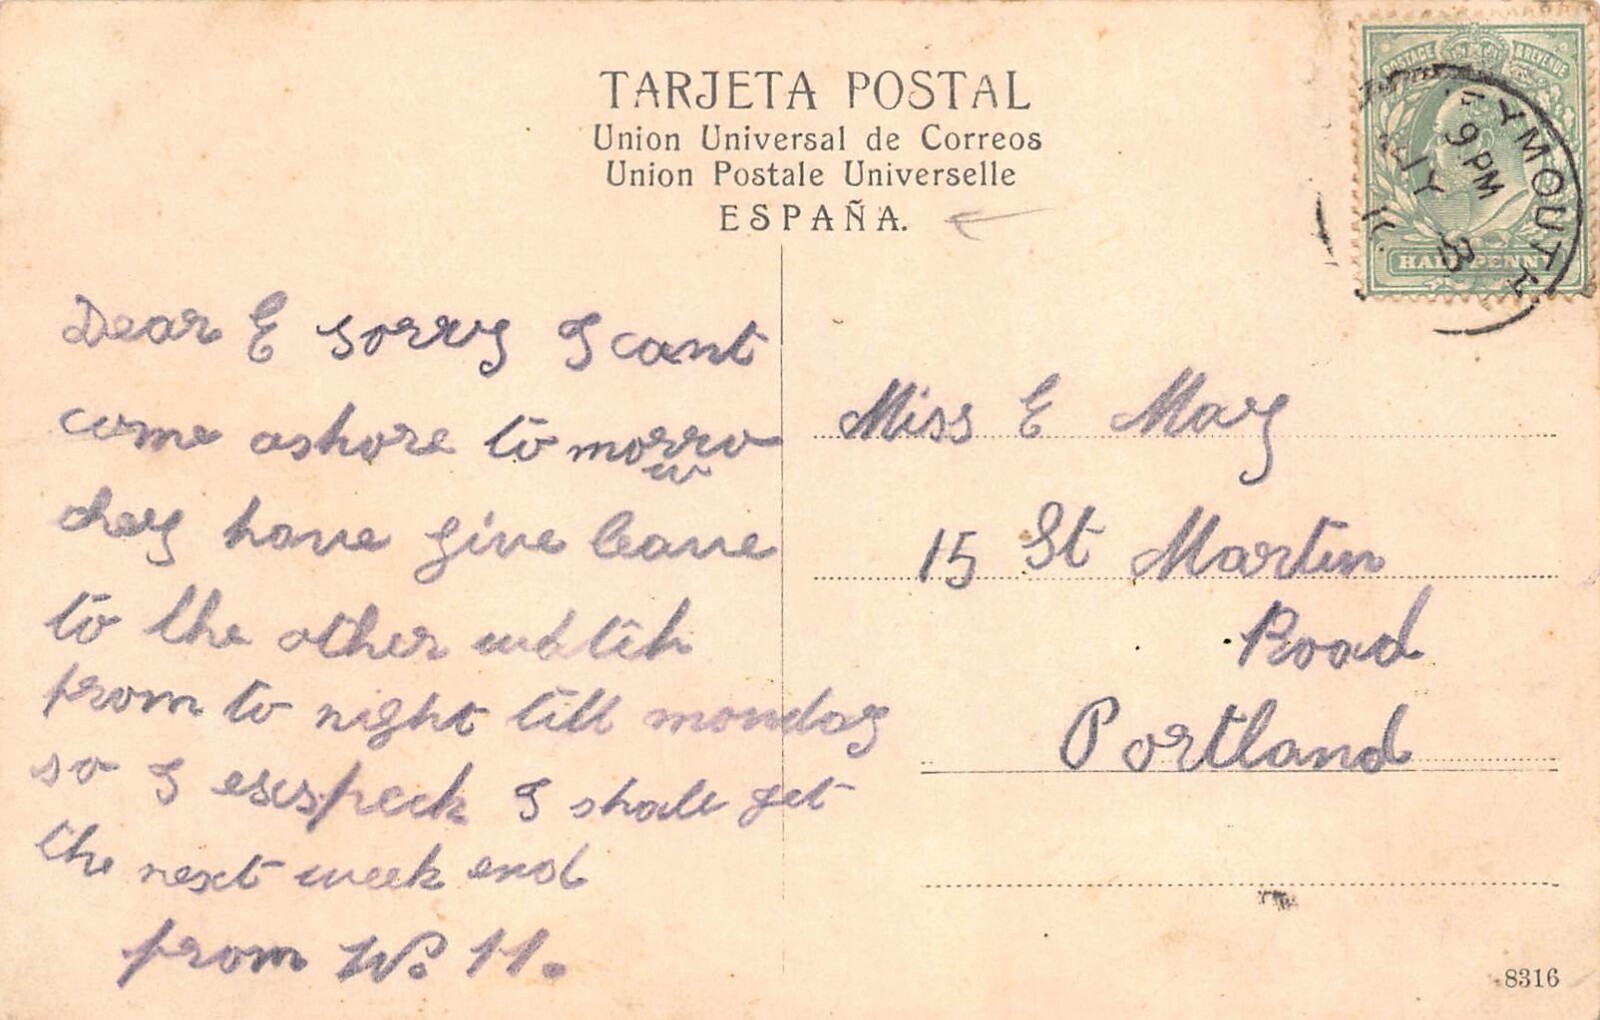 TARJETA POSTAL
Union Universal de Correos
Union Postale Universelle
ESPAÑA.
POSTAGE & REVENUE
HALFPENNY
EYMOUTH
9 PM
JY
11
Dear E sorry I cant
come ashore to morro
w
they have give leave
to the other watch
from to night till monday
so I exspeck I shall get
the next week end
from W. H.
Miss E May
15 St Martin
Road
Portland
8316